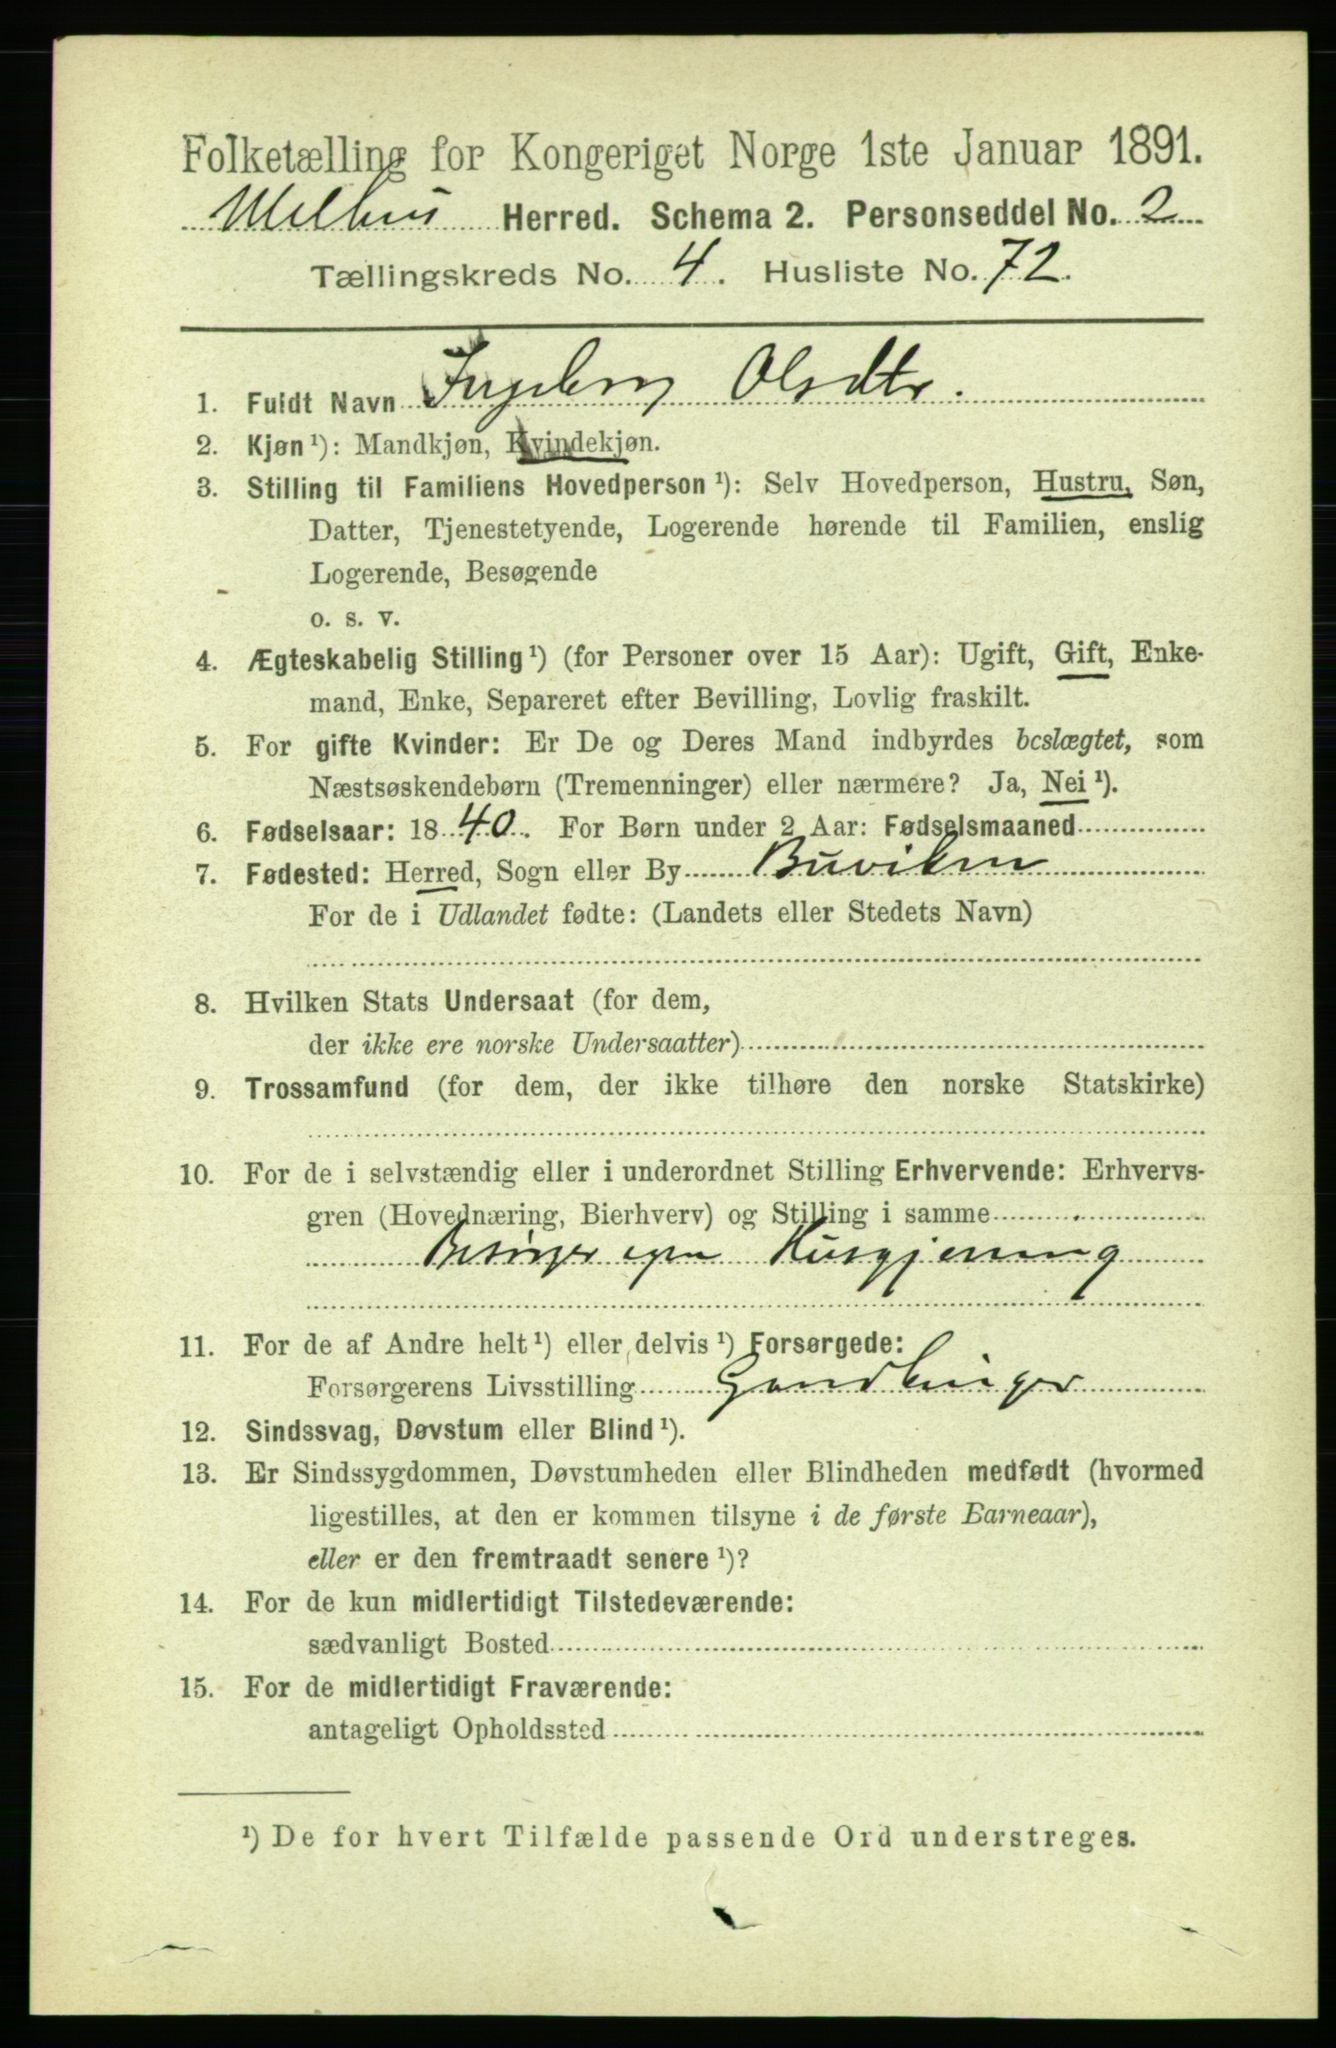 Folketælling for Kongeriget Norge 1ste Januar 1891.
Melhus Herred. Schema 2. Personseddel No. 2
Tællingskreds No. 4. Husliste No. 72.
1. Fuldt Navn Ingeborg Olsdtr.
2. Kjøn¹): Mandkjøn, Kvindekjøn.
3. Stilling til Familiens Hovedperson¹): Selv Hovedperson, Hustru, Søn,
Datter, Tjenestetyende, Logerende hørende til Familien, enslig
Logerende, Besøgende
o. s. v.
4. Ægteskabelig Stilling¹) (for Personer over 15 Aar): Ugift, Gift, Enke-
mand, Enke, Separeret efter Bevilling, Lovlig fraskilt.
5. For gifte Kvinder: Er De og Deres Mand indbyrdes beslægtet, som
Næstsøskendebørn (Tremenninger) eller nærmere? Ja, Nei¹).
6. Fødselsaar: 1840. For Børn under 2 Aar: Fødselsmaaned
7. Fødested: Herred, Sogn eller By Buviken
For de i Udlandet fødte: (Landets eller Stedets Navn)
8. Hvilken Stats Undersaat (for dem,
der ikke ere norske Undersaatter)
9. Trossamfund (for dem, der ikke tilhøre den norske Statskirke)
10. For de i selvstændig eller i underordnet Stilling Erhvervende: Erhvervs-
gren (Hovednæring, Bierhverv) og Stilling i samme
Besørger egen Husgjerning
11. For de af Andre helt¹) eller delvis¹) Forsørgede:
Forsørgerens Livsstilling Gaardbruger
12. Sindssvag, Døvstum eller Blind¹).
13. Er Sindssygdommen, Døvstumheden eller Blindheden medfødt (hvormed
ligestilles, at den er kommen tilsyne i de første Barneaar),
eller er den fremtraadt senere¹)?
14. For de kun midlertidigt Tilstedeværende:
sædvanligt Bosted
15. For de midlertidigt Fraværende:
antageligt Opholdssted
¹) De for hvert Tilfælde passende Ord understreges.